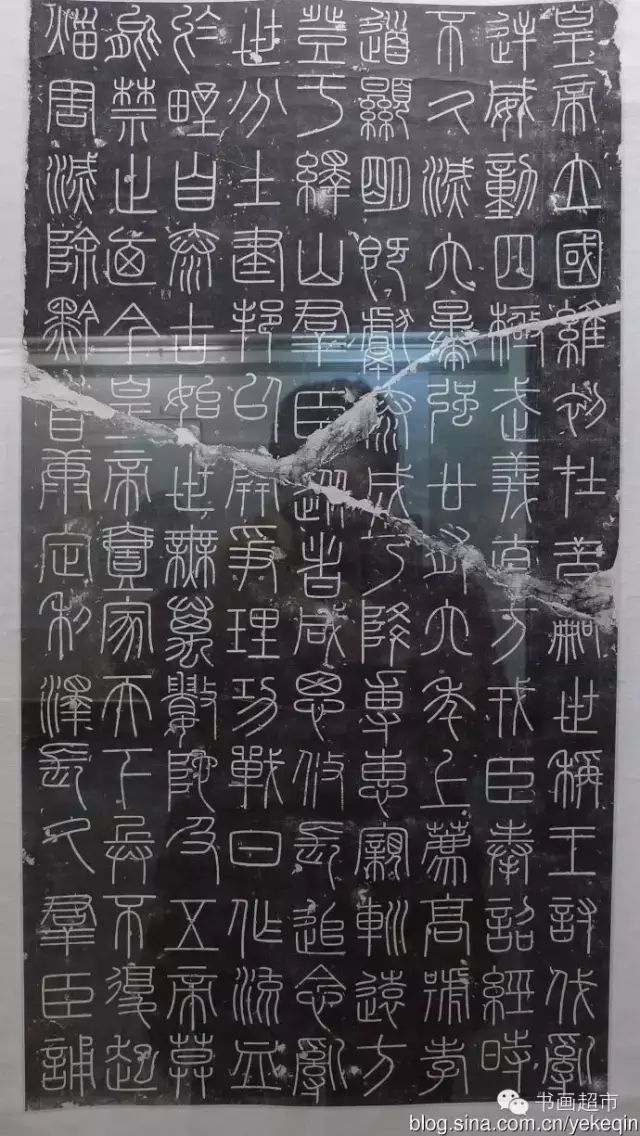 皇帝立國維初在昔嗣世稱王討伐亂
逆威動四極武義直方戎臣奉詔經時
不久滅六暴强廿有六年上薦高號孝
道顯明既獻泰成乃降專惠親巡遠方
登于繹山群臣從者咸思攸長追念亂
世分土建邦以開爭理功戰日作流血
於野自泰古始世無萬數陀及五帝莫
能禁止廼今皇帝壹家天下兵不復起
災害滅除黔首康定利澤長久群臣誦
书画超市
blog.sina.com.cn/yekeqin